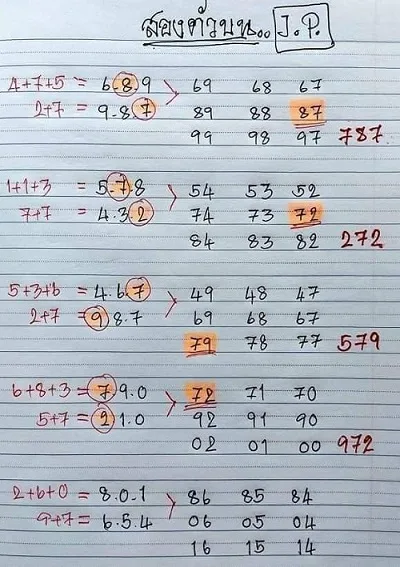 สองตัวบน.. J.P.
4+7+5 = 6.8.9 > 69 68 67
2+7 = 9.8.7 89 88 87
99 98 97 787
1+1+3 = 5.7.8 > 54 53 52
7+7 = 4.3.2 74 73 72
84 83 82 272
5+3+6 = 4.6.7 > 49 48 47
2+7 = 9 8.7 69 68 67
79 78 77 579
6+8+3 = 7 9.0 > 72 71 70
5+7 = 2 1.0 92 91 90
02 01 00 972
2+6+0 = 8.0.1 > 86 85 84
9+7 = 6.5.4 06 05 04
16 15 14